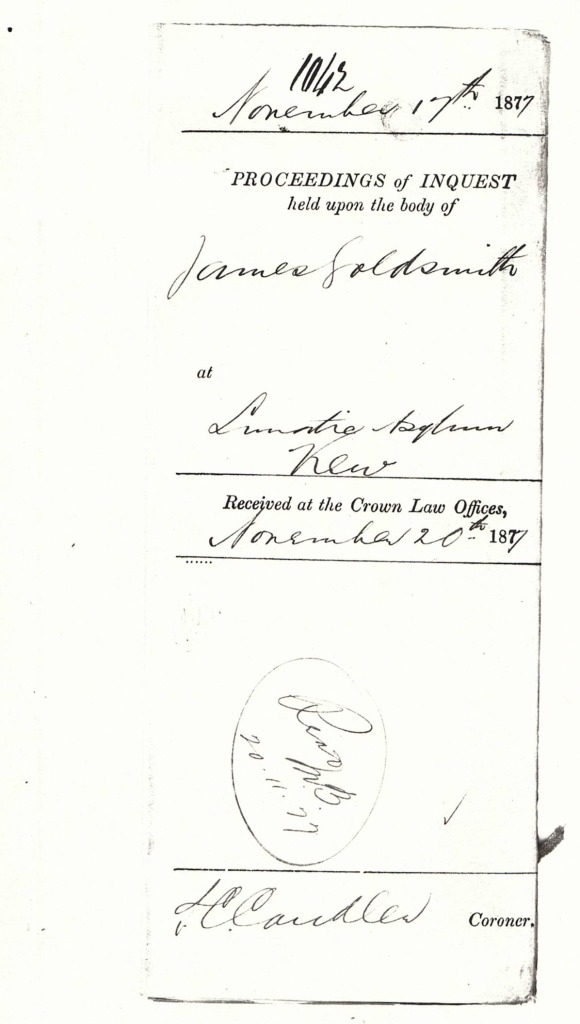 1042
November 17th 1877
PROCEEDINGS of INQUEST
held upon the body of
James Goldsmith
at
Lunatic Asylum
Kew
Received at the Crown Law Offices,
November 20th 1877
20.11.77
Candler
Coroner.